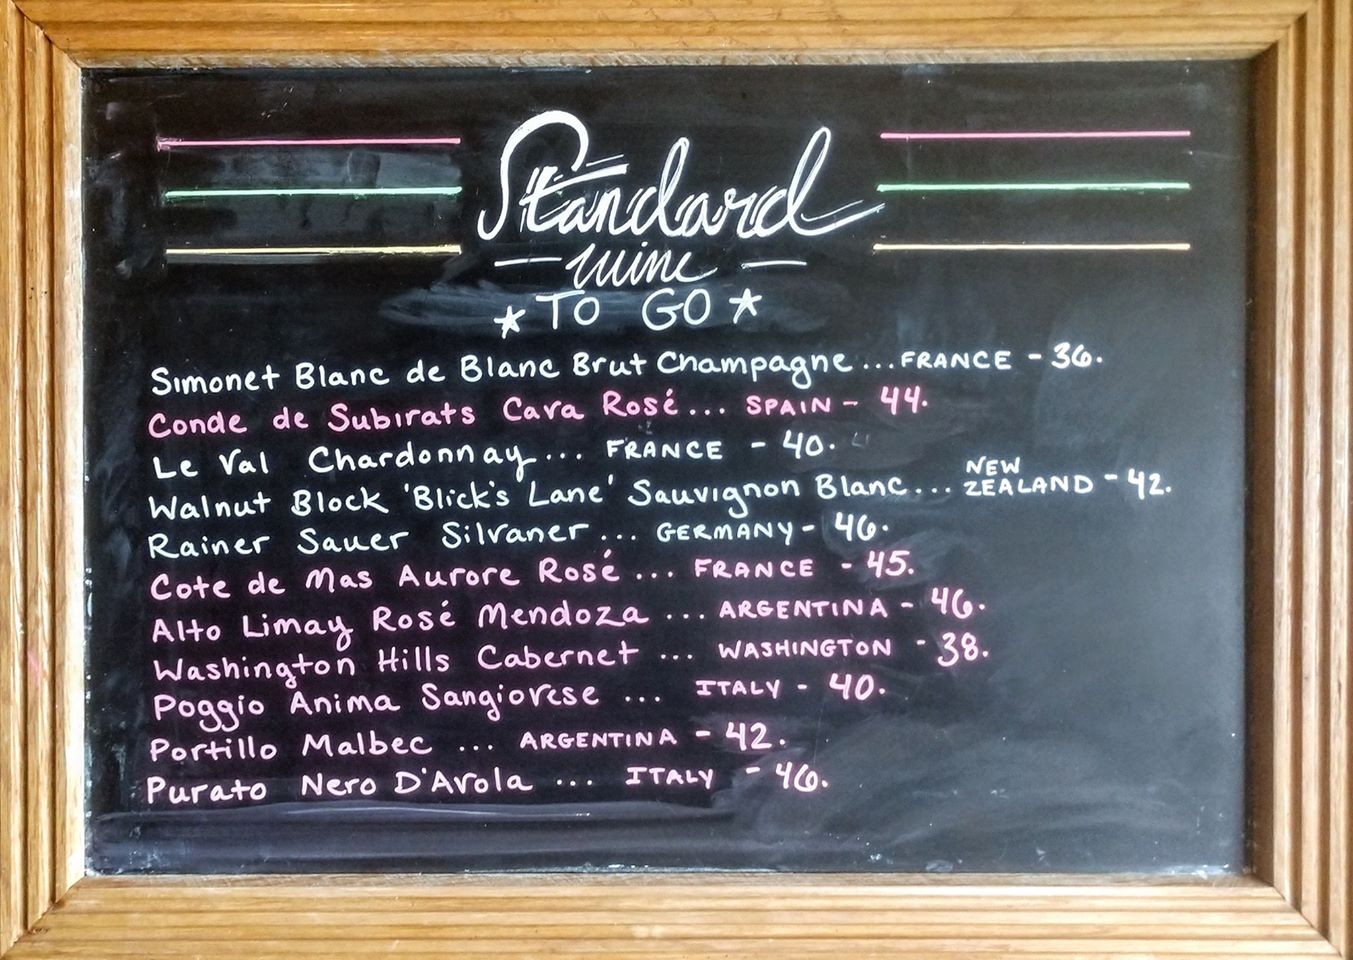 Standard
— wine —
★ TO GO ★
Simonet Blanc de Blanc Brut Champagne ... FRANCE - 36.
Conde de Subirats Cava Rosé ... SPAIN - 44.
Le Val Chardonnay ... FRANCE - 40.
Walnut Block 'Blick's Lane' Sauvignon Blanc ... NEW ZEALAND - 42.
Rainer Sauer Silvaner ... GERMANY - 46.
Cote de Mas Aurore Rosé ... FRANCE - 45.
Alto Limay Rosé Mendoza ... ARGENTINA - 46.
Washington Hills Cabernet ... WASHINGTON - 38.
Poggio Anima Sangiovese ... ITALY - 40.
Portillo Malbec ... ARGENTINA - 42.
Purato Nero D'Avola ... ITALY - 46.